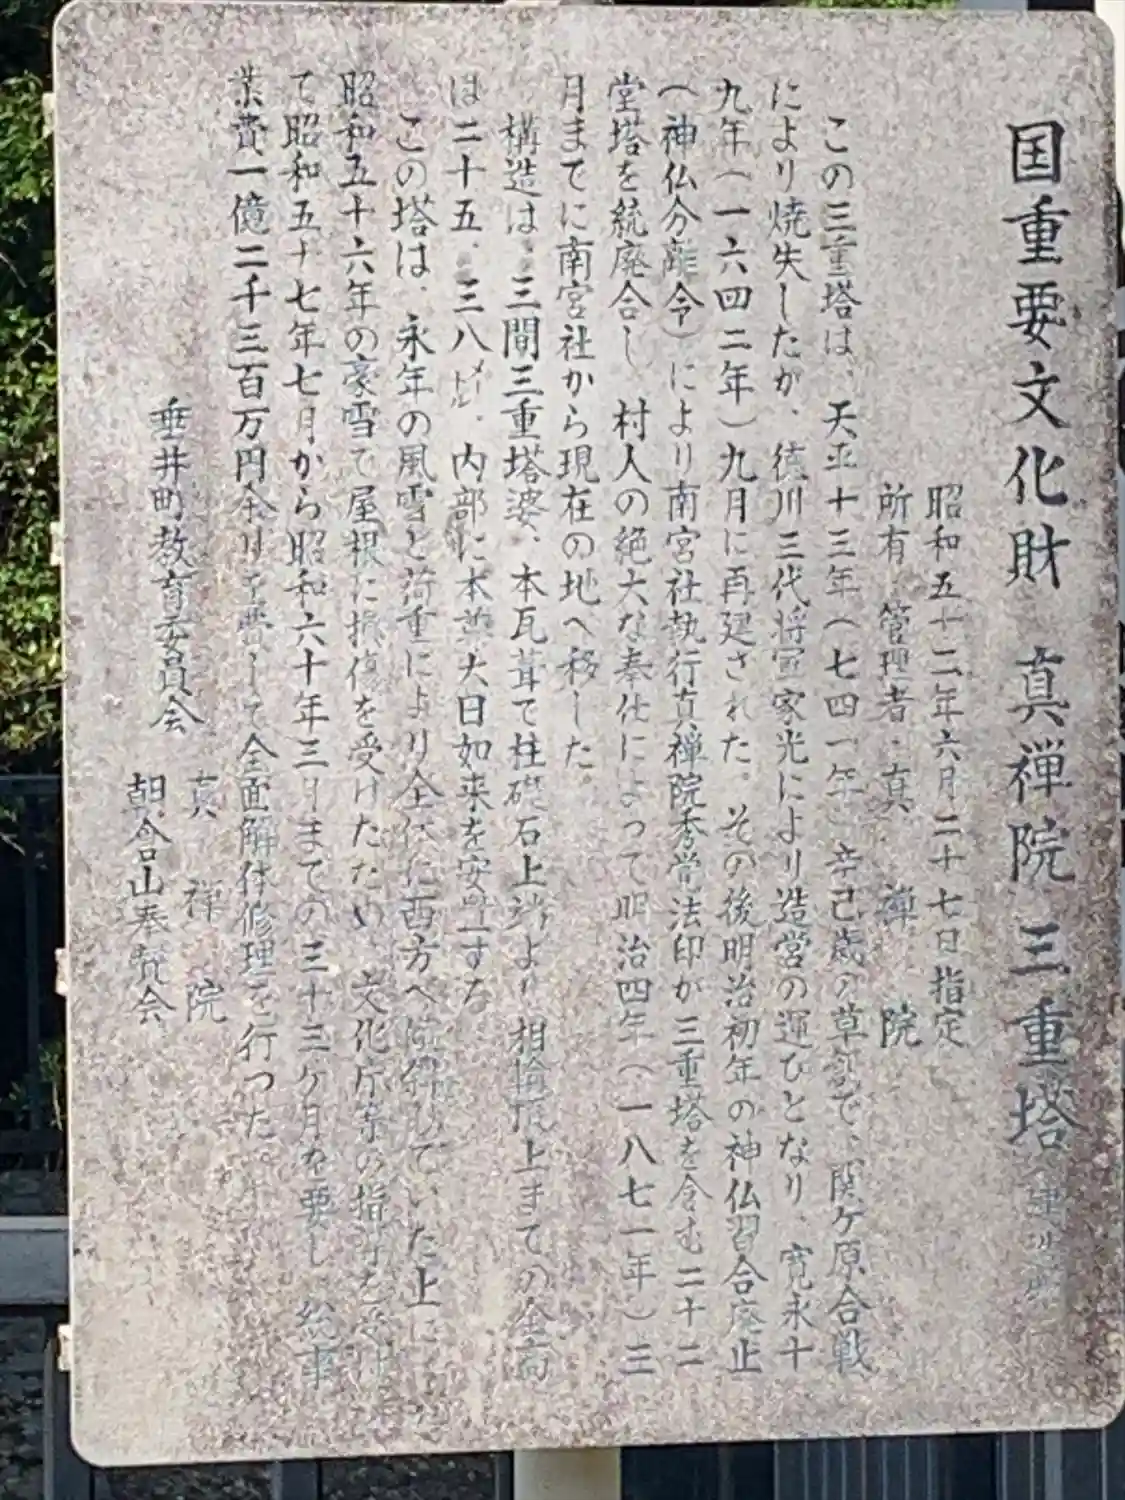 国重要文化財 真禅院 三重塔(建造物)
昭和五十二年六月二十七日指定
所有・管理者・真禅院
この三重塔は、天平十三年(七四一年)辛己歳の草創で、関ケ原合戦
により焼失したが、徳川三代将軍家光により造営の運びとなり、寛永十
九年(一六四二年)九月に再建された。その後明治初年の神仏習合廃止
(神仏分離令)により南宮社執行真禅院秀覚法印が三重塔を含む二十二
堂塔を統廃合し、村人の絶大な奉仕によって明治四年(一八七一年)三
月までに南宮社から現在の地へ移した。
構造は、三間三重塔婆、本瓦葺で柱礎石上端より相輪頂上までの全高
は二十五・三八メートル。内部に本尊大日如来を安置する。
この塔は、永年の風雪と荷重により全体に西方へ傾斜していた上に
昭和五十六年の豪雪で屋根に損傷を受けたため、文化庁等の指導を受け
て昭和五十七年七月から昭和六十年三月までの三十三ケ月を要し、総事
業費一億二千三百万円余りを費して全面解体修理を行つた。
真禅院
垂井町教育委員会
朝倉山奉賛会